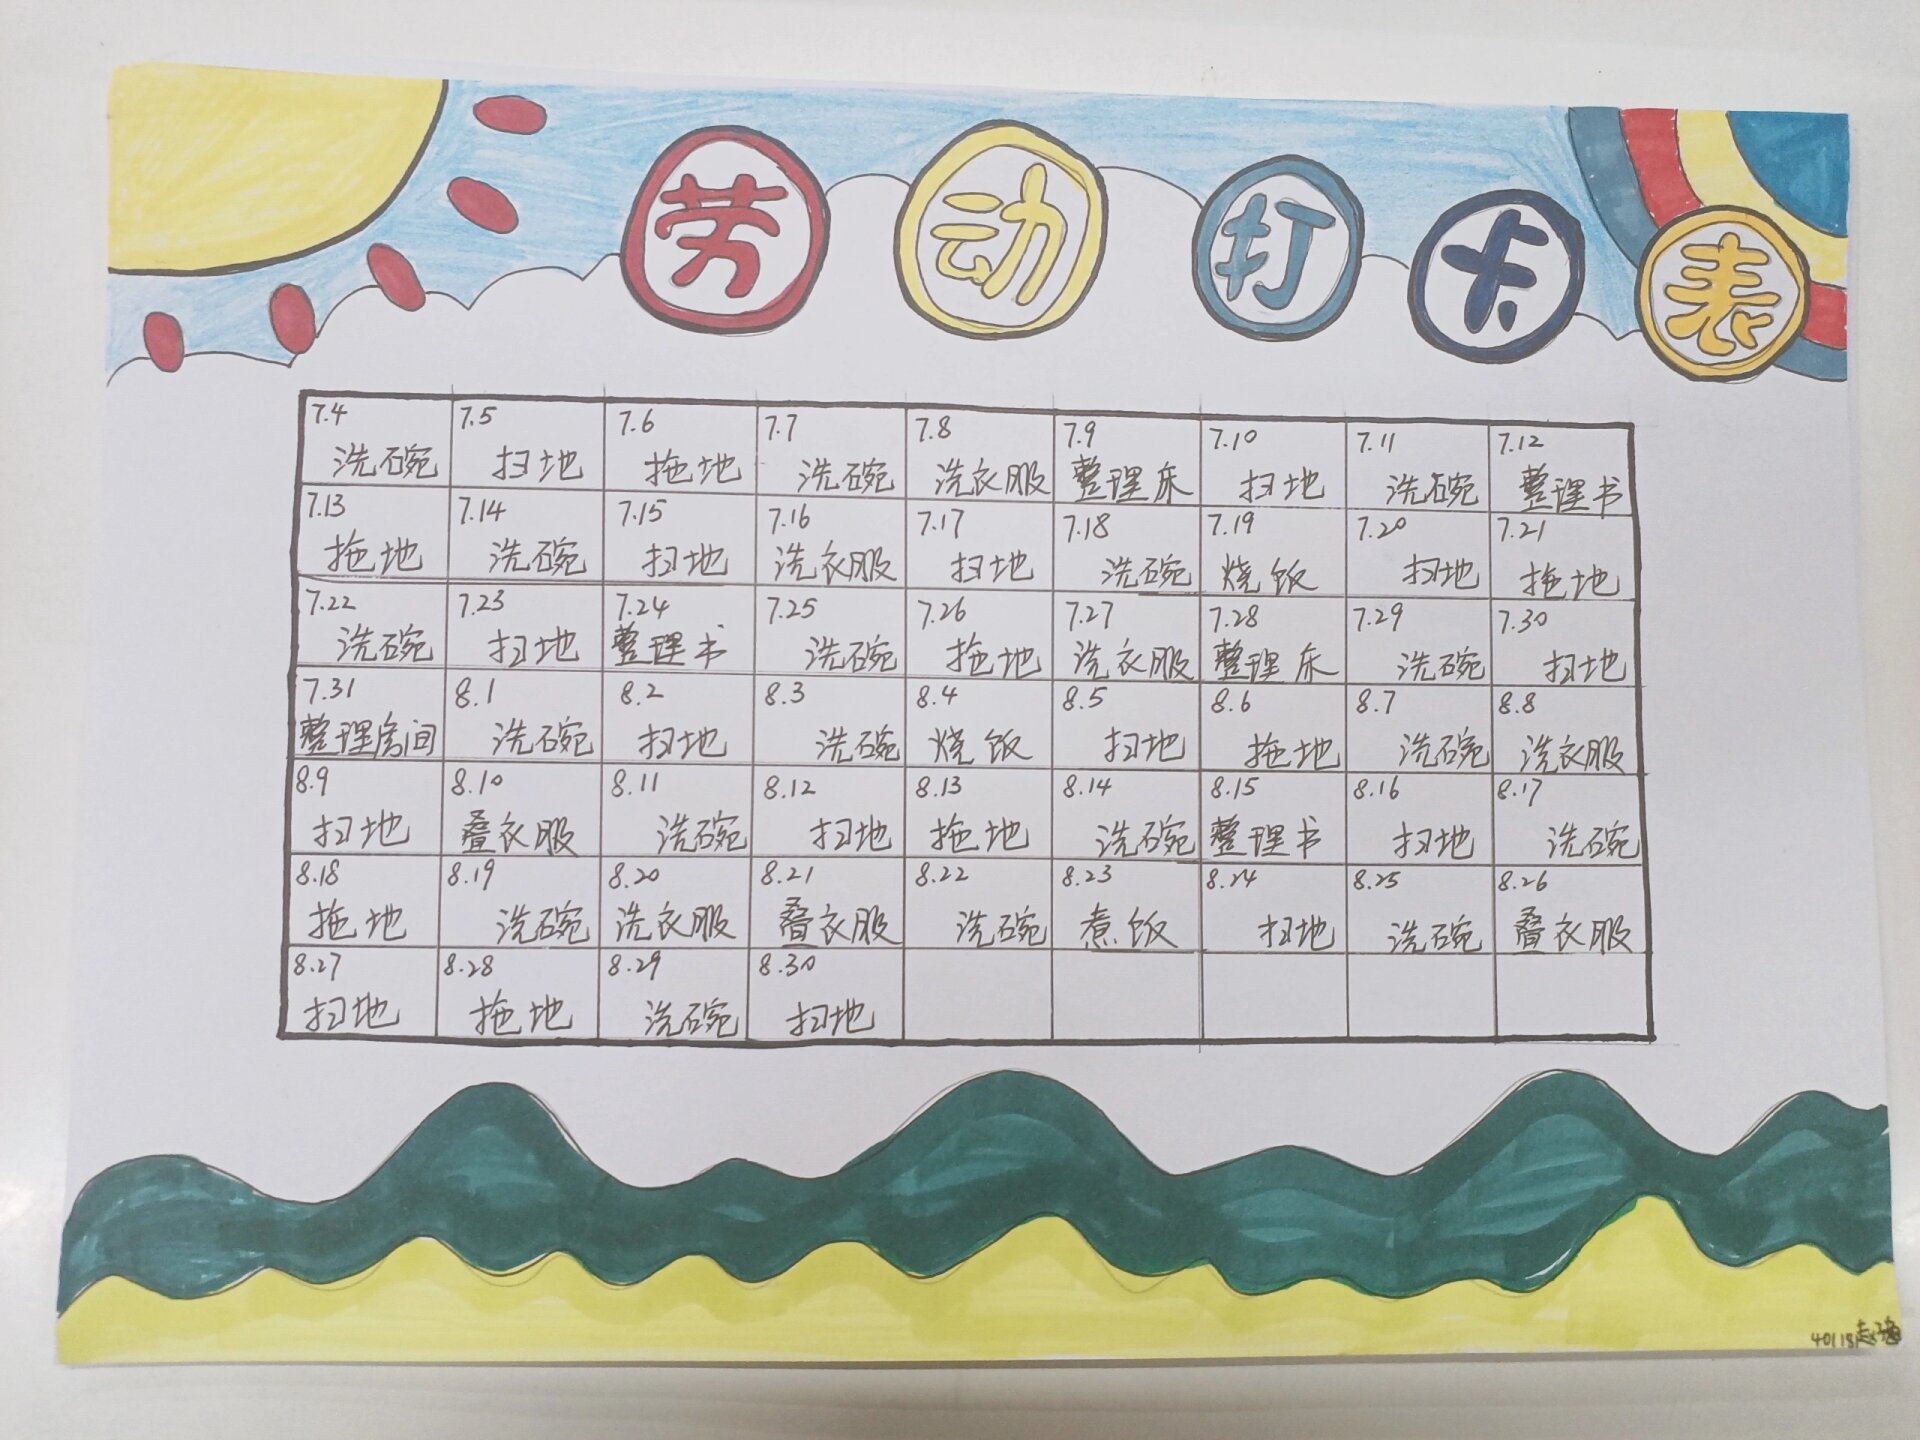 劳动打卡表
7.4 7.5 7.6 7.7 7.8 7.9 7.10 7.11 7.12
洗碗 扫地 拖地 洗碗 洗衣服 整理床 扫地 洗碗 整理书
7.13 7.14 7.15 7.16 7.17 7.18 7.19 7.20 7.21
拖地 洗碗 扫地 洗衣服 扫地 洗碗 烧饭 扫地 拖地
7.22 7.23 7.24 7.25 7.26 7.27 7.28 7.29 7.30
洗碗 扫地 整理书 洗碗 拖地 洗衣服 整理床 洗碗 扫地
7.31 8.1 8.2 8.3 8.4 8.5 8.6 8.7 8.8
整理房间 洗碗 扫地 洗碗 烧饭 扫地 拖地 洗碗 洗衣服
8.9 8.10 8.11 8.12 8.13 8.14 8.15 8.16 8.17
扫地 叠衣服 洗碗 扫地 拖地 洗碗 整理书 扫地 洗碗
8.18 8.19 8.20 8.21 8.22 8.23 8.24 8.25 8.26
拖地 洗碗 洗衣服 叠衣服 洗碗 煮饭 扫地 洗碗 叠衣服
8.27 8.28 8.29 8.30
扫地 拖地 洗碗 扫地
40118赵